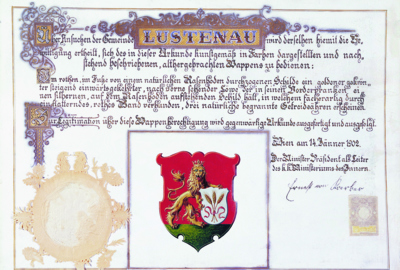 Über Ansuchen der Gemeinde LUSTENAU wird derselben hiemit die Be-
willigung ertheilt, sich des in dieser Urkunde kunstgemäß in Farben dargestellten und nach-
stehend beschriebenen, althergebrachten Wappens zu bedienen:
Im rothen, im Fuße von einem natürlichen Rasenboden durchzogenen Schilde ein goldener gekrön-
ter steigend einwärtsgekehrter, nach vorne sehender Löwe der in seinen Vorderpranken einen
silbernen, auf dem Rasenboden aufstehenden Schild hält, in welchem fächerartig durch ein
flatterndes, rothes Band verbunden, drei natürliche begrannte Getreideähren erscheinen.
Zur Legitimation über diese Wappenberechtigung wird gegenwärtige Urkunde ausgefertigt und ausgefolgt.
Wien am 14. Jänner 1902.
Der Minister Präsident als Leiter
des k.k. Ministeriums des Innern